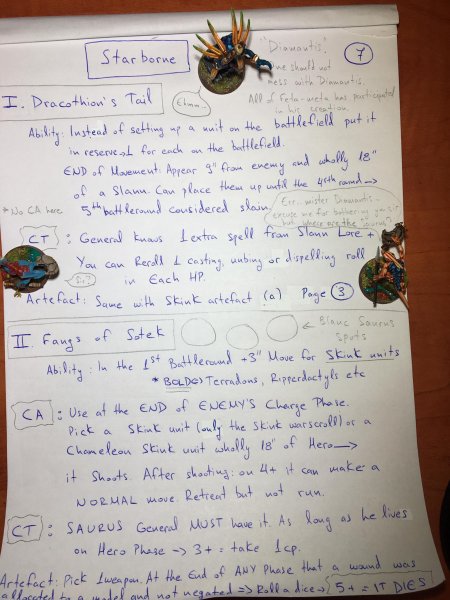 Starborne
"Diamantis"
7
one should not
mess with Diamantis.
All of Feta-meta has participated
in his creation.
Ehmm..
I. Dracothion's Tail
Ability: Instead of setting up a unit on the battlefield put it
in reserve → 1 for each on the battlefield.
END of Movement: Appear 9" from enemy and wholly 18"
of a Slann. Can place them up until the 4rth round →
5th battleround considered slain.
* No CA here
Err.. mister Diamantis
excuse me for bother my sir
but where are the "saurus"
CT : General knows 1 extra spell from Slann Lore +
You can Reroll 1 casting, unbing or dispelling roll
in Each HP.
Sir?
Artefact: Same with Skink artefact (a) Page 3
II. Fangs of Sotek
← Blanc Saurus
Spots
Ability: In the 1st Battleround +3" Move for Skink units
* BOLD => Terradons, Ripperdactyls etc
CA : Use at the END of ENEMY'S Charge Phase.
Pick a Skink unit (only the skink warscroll) or a
Chameleon Skink unit wholly 18" of Hero →
it Shoots. After shooting: on 4+ it can make a
NORMAL move. Retreat but not run.
CT : SAURUS General MUST have it. As long as he lives
on Hero Phase → 3+ = take 1cp.
Artefact: Pick 1 weapon. At the End of ANY Phase that a wound was
allocated to a model and not negated => Roll a dice → 5+ = IT DIES